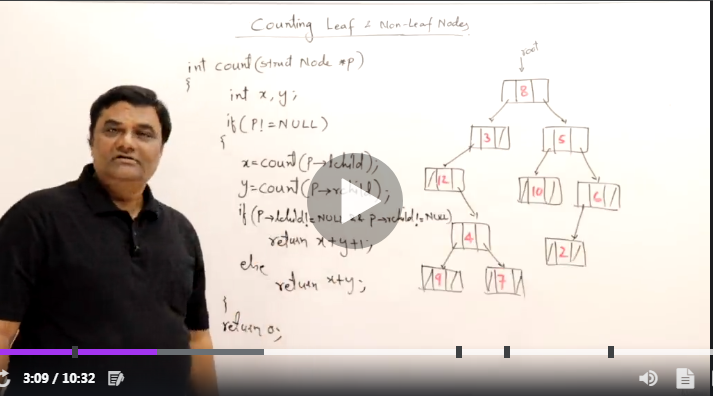 Counting Leaf & Non-Leaf Nodes
int count(struct Node *p)
{
int x, y;
if(P!=NULL)
{
x=count(P→lchild);
y=count(P→rchild);
if(P→lchild!=NULL && p→rchild!=NULL)
return x+y+1;
else
return x+y;
}
return 0;
root
8
3 5
12 10 6
4 2
9 7
3:09 / 10:32